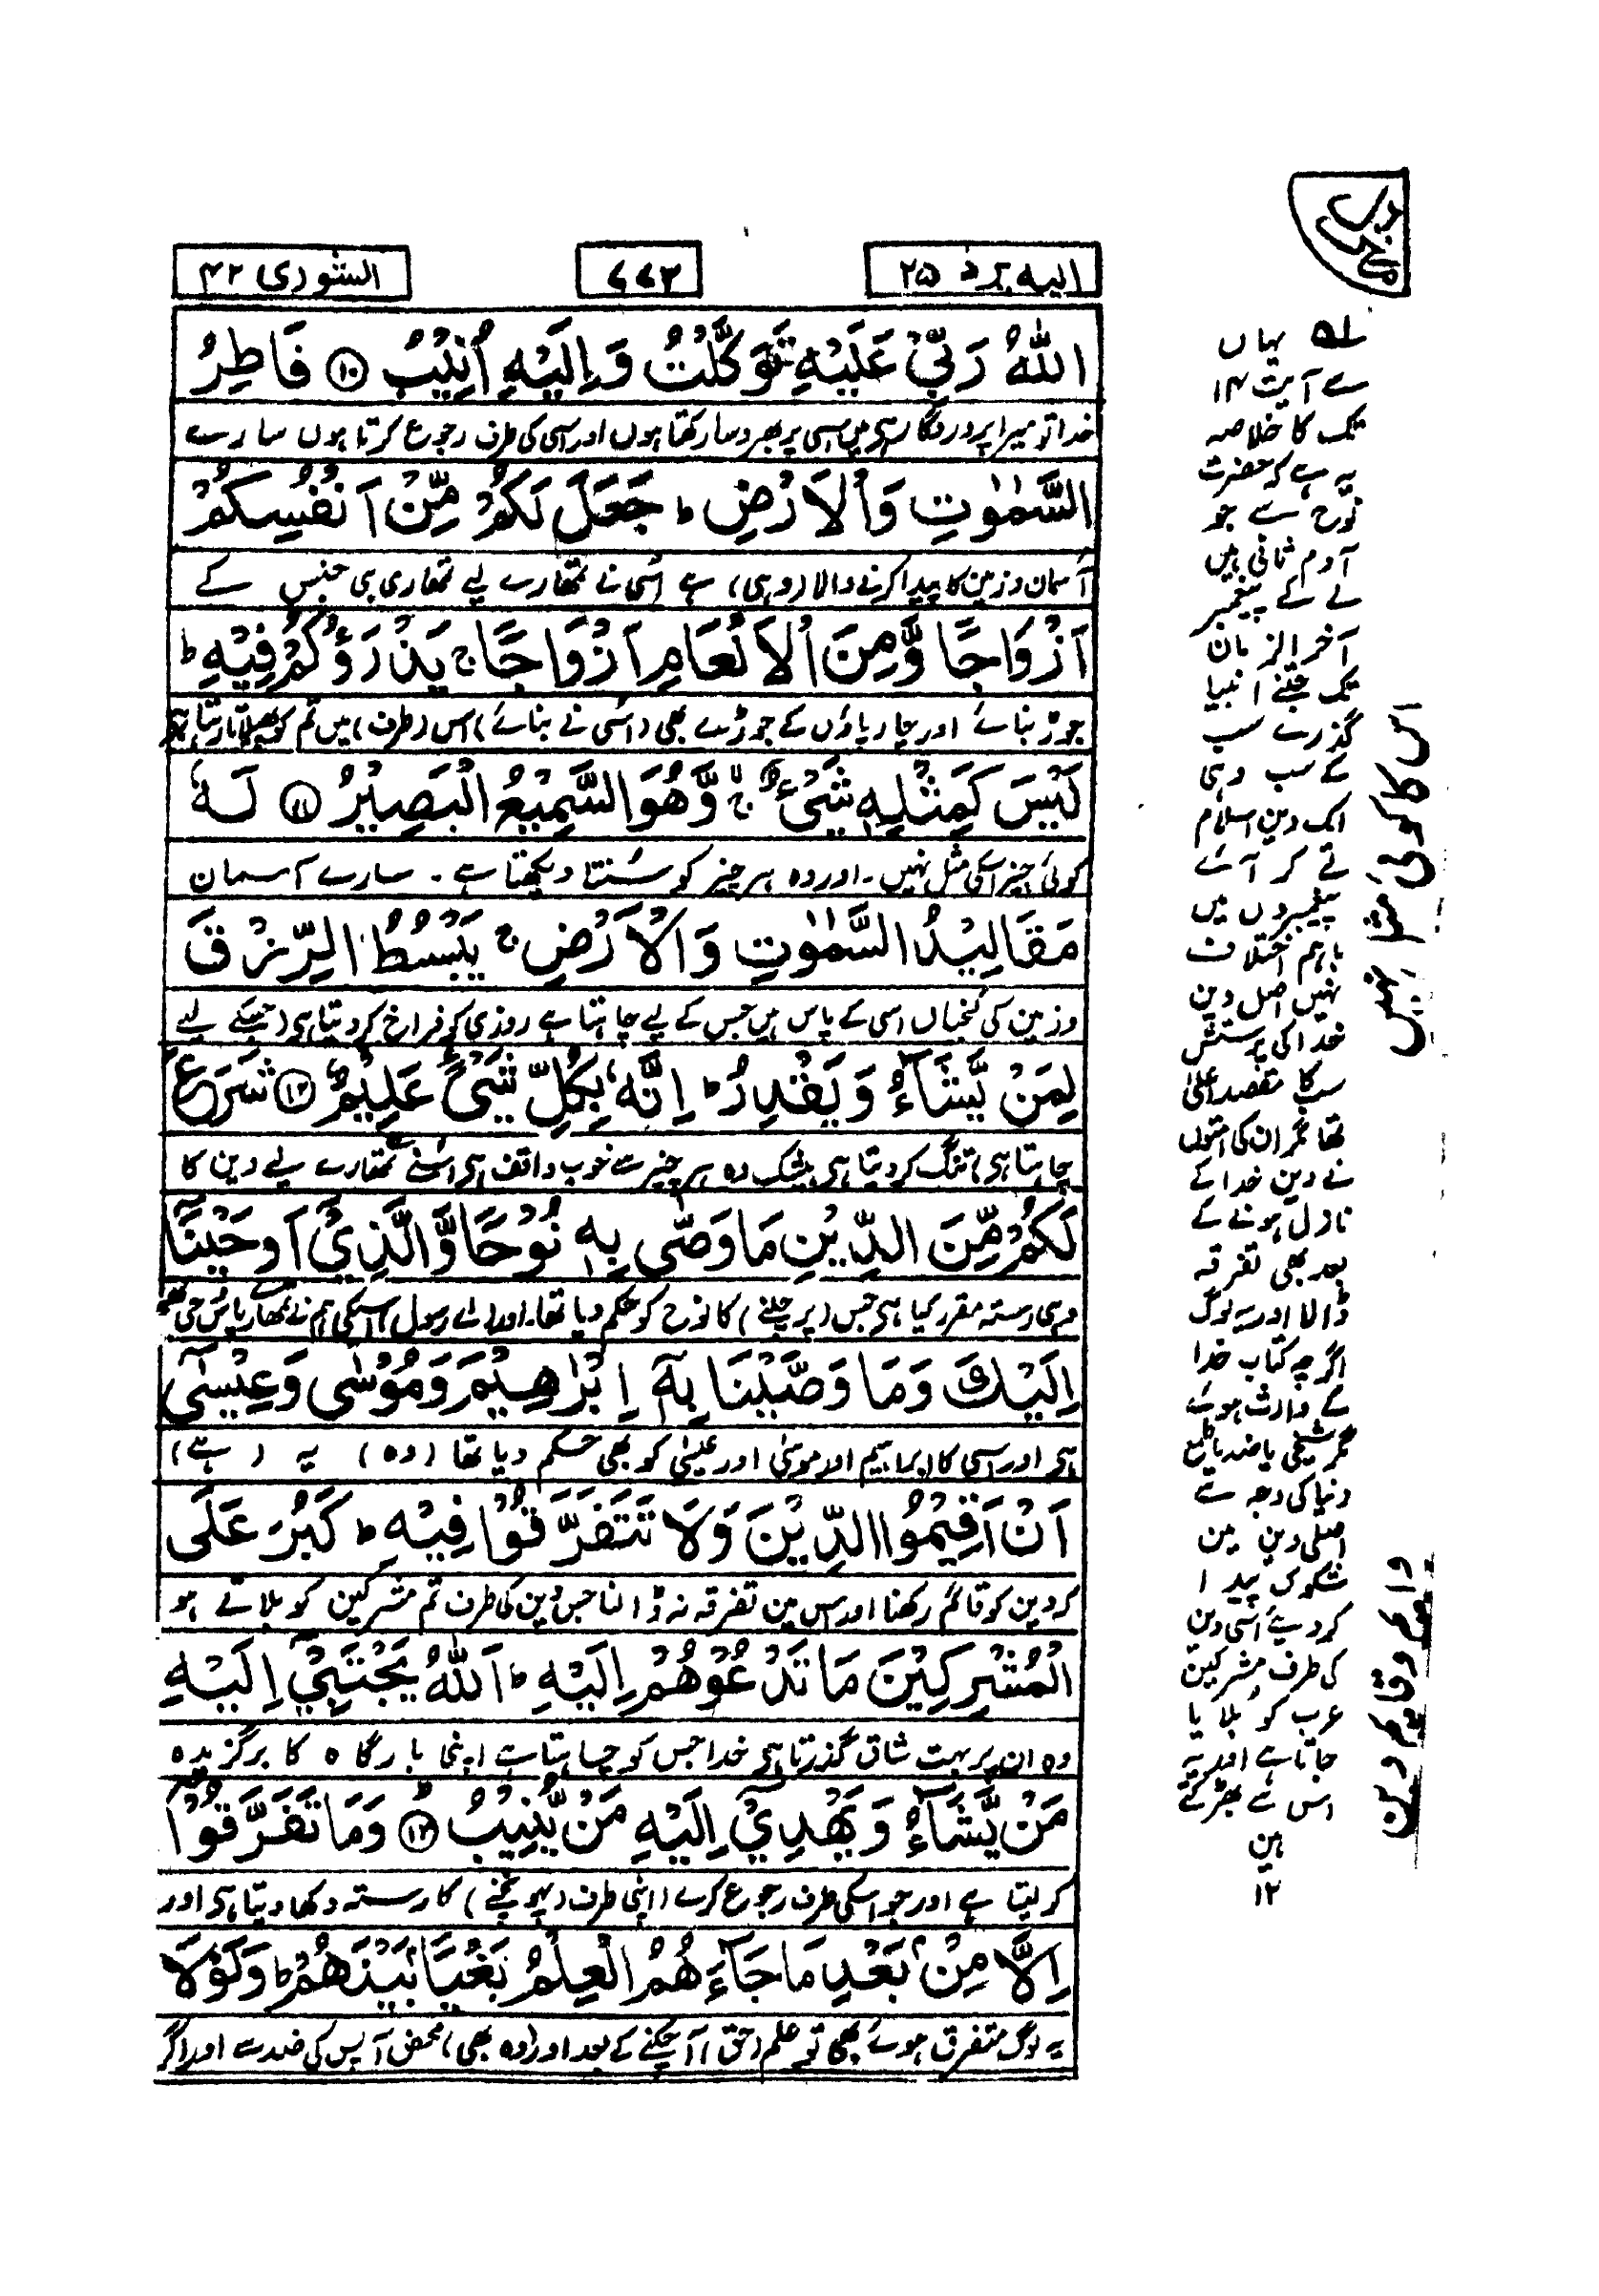 الیہ یرد ۲۵
۷۷۳
الشوریٰ ۴۲
اللّٰهُ رَبِّيْ عَلَيْهِ تَوَكَّلْتُ وَاِلَيْهِ اُنِيْبُ ⑩ فَاطِرُ
خدا تو میرا پروردگار ہی میں اسی پر بھروسا رکھتا ہوں اور اسی کی طرف رجوع کرتا ہوں سارے
السَّمٰوٰتِ وَالْاَرْضِ ؕ جَعَلَ لَكُمْ مِّنْ اَنْفُسِكُمْ
آسمان و زمین کا پیدا کرنے والا (وہی) ہے اُسی نے تمھارے لیے تمھاری ہی جنس کے
اَزْوَاجًا وَّمِنَ الْاَنْعَامِ اَزْوَاجًا ۚ يَذْرَؤُكُمْ فِيْهِ ؕ
جوڑ بنائے اور چارپاؤں کے جوڑے بھی (اُسی نے بنائے) اس (طرف) میں تم کو پھیلاتا رہتا ہی
لَيْسَ كَمِثْلِهٖ شَيْءٌ ۚ وَّهُوَ السَّمِيْعُ الْبَصِيْرُ ⑪ لَهٗ
کوئی چیز اسکی مثل نہیں ۔ اور وہ ہر چیز کو سُنتا دیکھتا ہے ۔ سارے آسمان
مَقَالِيْدُ السَّمٰوٰتِ وَالْاَرْضِ ۚ يَبْسُطُ الرِّزْقَ
و زمین کی کنجیاں اسی کے پاس ہیں جس کے لیے چاہتا ہے روزی کو فراخ کر دیتا ہی (جسکے لیے
لِمَنْ يَّشَآءُ وَيَقْدِرُ ؕ اِنَّهٗ بِكُلِّ شَيْءٍ عَلِيْمٌ ⑫ شَرَعَ
چاہتا ہی) تنگ کر دیتا ہی بیشک وہ ہر چیز سے خوب واقف ہی اُسنے تمھارے لیے دین کا
لَكُمْ مِّنَ الدِّيْنِ مَا وَصّٰى بِهٖ نُوْحًا وَّالَّذِيْٓ اَوْحَيْنَآ
وہی رستہ مقرر کیا ہی جس (پر چلنے) کا نوح کو حکم دیا تھا ۔ اور (اے رسول) اسیکی ہم نے تمھارے پاس وحی بھیجی
اِلَيْكَ وَمَا وَصَّيْنَا بِهٖٓ اِبْرٰهِيْمَ وَمُوْسٰى وَعِيْسٰٓى
ہی اور اسی کا ابراہیم اور موسیٰ اور عیسیٰ کو بھی حکم دیا تھا (وہ) یہ (ہے)
اَنْ اَقِيْمُوا الدِّيْنَ وَلَا تَتَفَرَّقُوْا فِيْهِ ؕ كَبُرَ عَلَى
کہ دین کو قائم رکھنا اور اس میں تفرقہ نہ ڈالنا جس دین کی طرف تم مشرکین کو بلاتے ہو
الْمُشْرِكِيْنَ مَا تَدْعُوْهُمْ اِلَيْهِ ؕ اَللّٰهُ يَجْتَبِيْٓ اِلَيْهِ
وہ ان پر بہت شاق گذرتا ہی خدا جس کو چاہتا ہے اپنی بارگاہ کا برگزیدہ
مَنْ يَّشَآءُ وَيَهْدِيْٓ اِلَيْهِ مَنْ يُّنِيْبُ ⑬ وَمَا تَفَرَّقُوْٓا
کر لیتا ہے اور جو اسکی طرف رجوع کرے (اپنی طرف (پہونچنے) کا رستہ دکھا دیتا ہی اور
اِلَّا مِنْۢ بَعْدِ مَا جَآءَهُمُ الْعِلْمُ بَغْيًۢا بَيْنَهُمْ ؕ وَلَوْلَا
یہ لوگ متفرق ہوئے بھی تو علم (حق) آ چکنے کے بعد اور (وہ بھی) محض آپس کی ضد سے اور اگر
۵۱ یہاں
سے آیت ۱۴
تک کا خلاصہ
یہ ہے کہ حضرت
نوح سے جو
آدم ثانی ہیں
لے کے پیغمبر
آخرالزمان
تک جتنے انبیا
گذرے سب
کے سب وہی
ایک دین اسلام
لے کر آئے
پیغمبروں میں
باہم اختلاف
نہیں اصل دین
خدا کی پرستش
سب کا مقصد اعلیٰ
تھا مگر ان کی امتوں
نے دین خدا کے
نازل ہونے کے
بعد بھی تفرقہ
ڈالا اور یہ لوگ
اگرچہ کتاب خدا
کے وارث ہوئے
مگر شیخی یا ضد یا طمع
دنیا کی وجہ سے
اصلی دین میں
شکوک پیدا
کر دیئے اسی دین
کی طرف مشرکین
عرب کو بلایا
جاتا ہے اور یہ
اس سے بھڑکتے
ہیں
۱۲
اس کا کوئی مثل نہیں